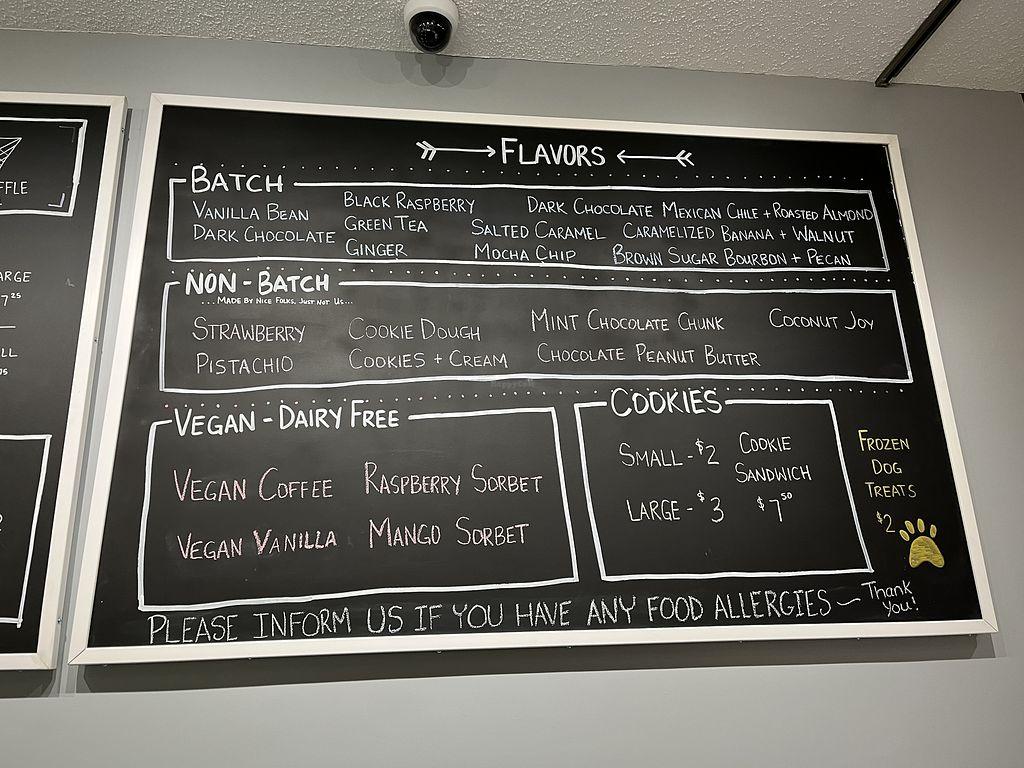 FLAVORS
BATCH
VANILLA BEAN
DARK CHOCOLATE
BLACK RASPBERRY
GREEN TEA
GINGER
SALTED CARAMEL
MOCHA CHIP
DARK CHOCOLATE MEXICAN CHILE + ROASTED ALMOND
CARAMELIZED BANANA + WALNUT
BROWN SUGAR BOURBON + PECAN
NON-BATCH
...MADE BY NICE FOLKS, JUST NOT US...
STRAWBERRY
PISTACHIO
COOKIE DOUGH
COOKIES + CREAM
MINT CHOCOLATE CHUNK
CHOCOLATE PEANUT BUTTER
COCONUT JOY
VEGAN-DAIRY FREE
VEGAN COFFEE
VEGAN VANILLA
RASPBERRY SORBET
MANGO SORBET
COOKIES
SMALL - $2
LARGE - $3
COOKIE
SANDWICH
$7.50
FROZEN
DOG
TREATS
$2
PLEASE INFORM US IF YOU HAVE ANY FOOD ALLERGIES ~ Thank
you!